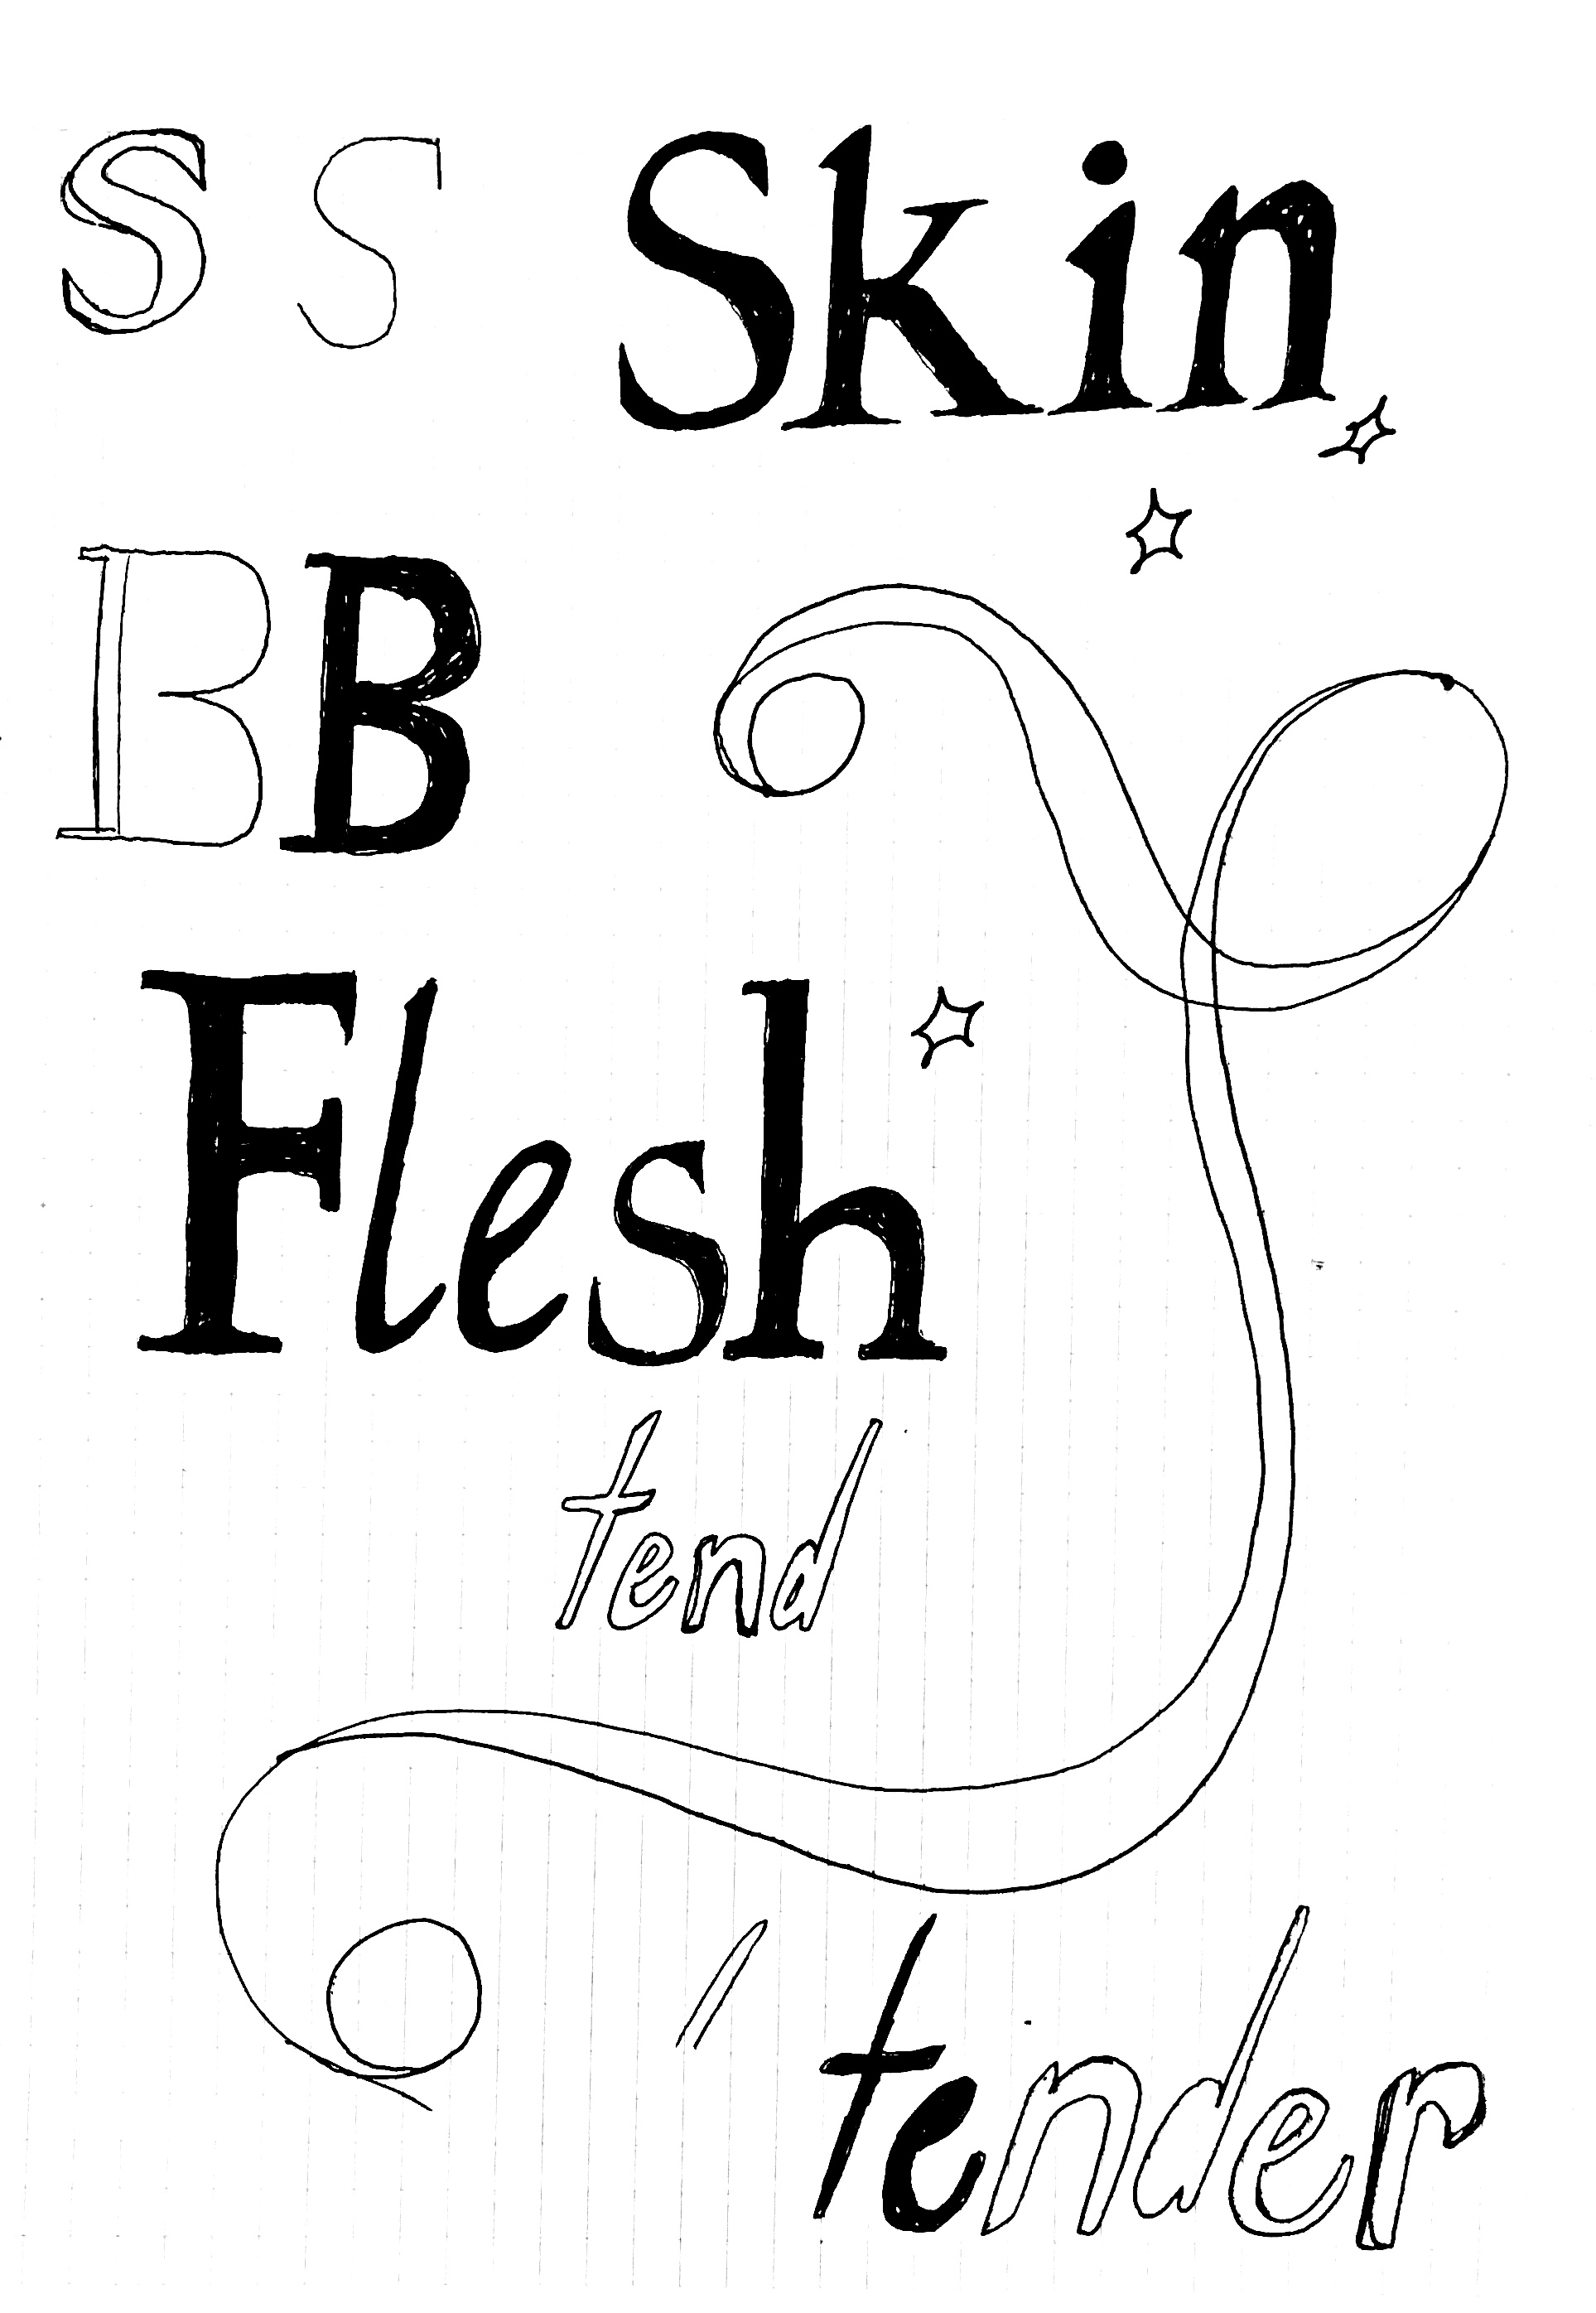 S S Skin
B B
Flesh
tend
tender